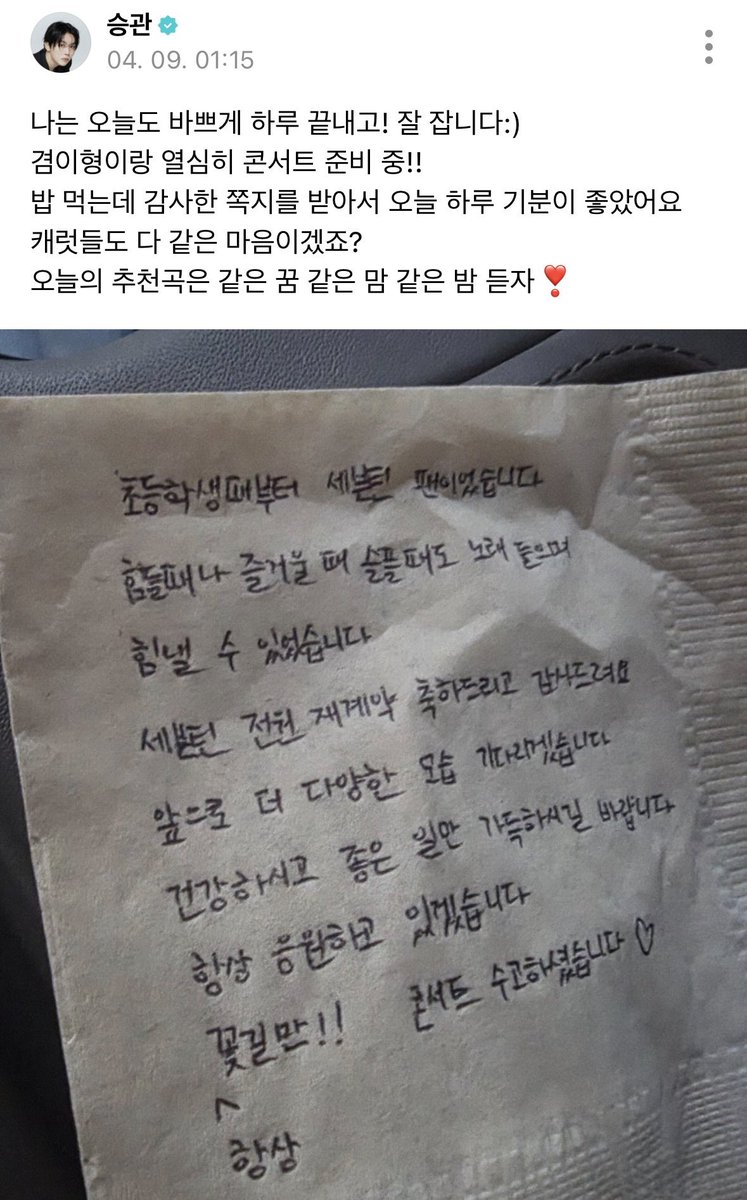 승관
04. 09. 01:15
나는 오늘도 바쁘게 하루 끝내고! 잘 잡니다:)
겸이형이랑 열심히 콘서트 준비 중!!
밥 먹는데 감사한 쪽지를 받아서 오늘 하루 기분이 좋았어요
캐럿들도 다 같은 마음이겠죠?
오늘의 추천곡은 같은 꿈 같은 맘 같은 밤 듣자❣️
초등학생때부터 세븐틴 팬이었습니다
힘들때나 즐거울 때 슬플때도 노래 들으며
힘낼 수 있었습니다
세븐틴 전원 재계약 축하드리고 감사드려요
앞으로 더 다양한 모습 기다리겠습니다
건강하시고 좋은 일만 가득하시길 바랍니다
항상 응원하고 있겠습니다
꽃길만!! 콘서트 수고하셨습니다 ♡
^
항상